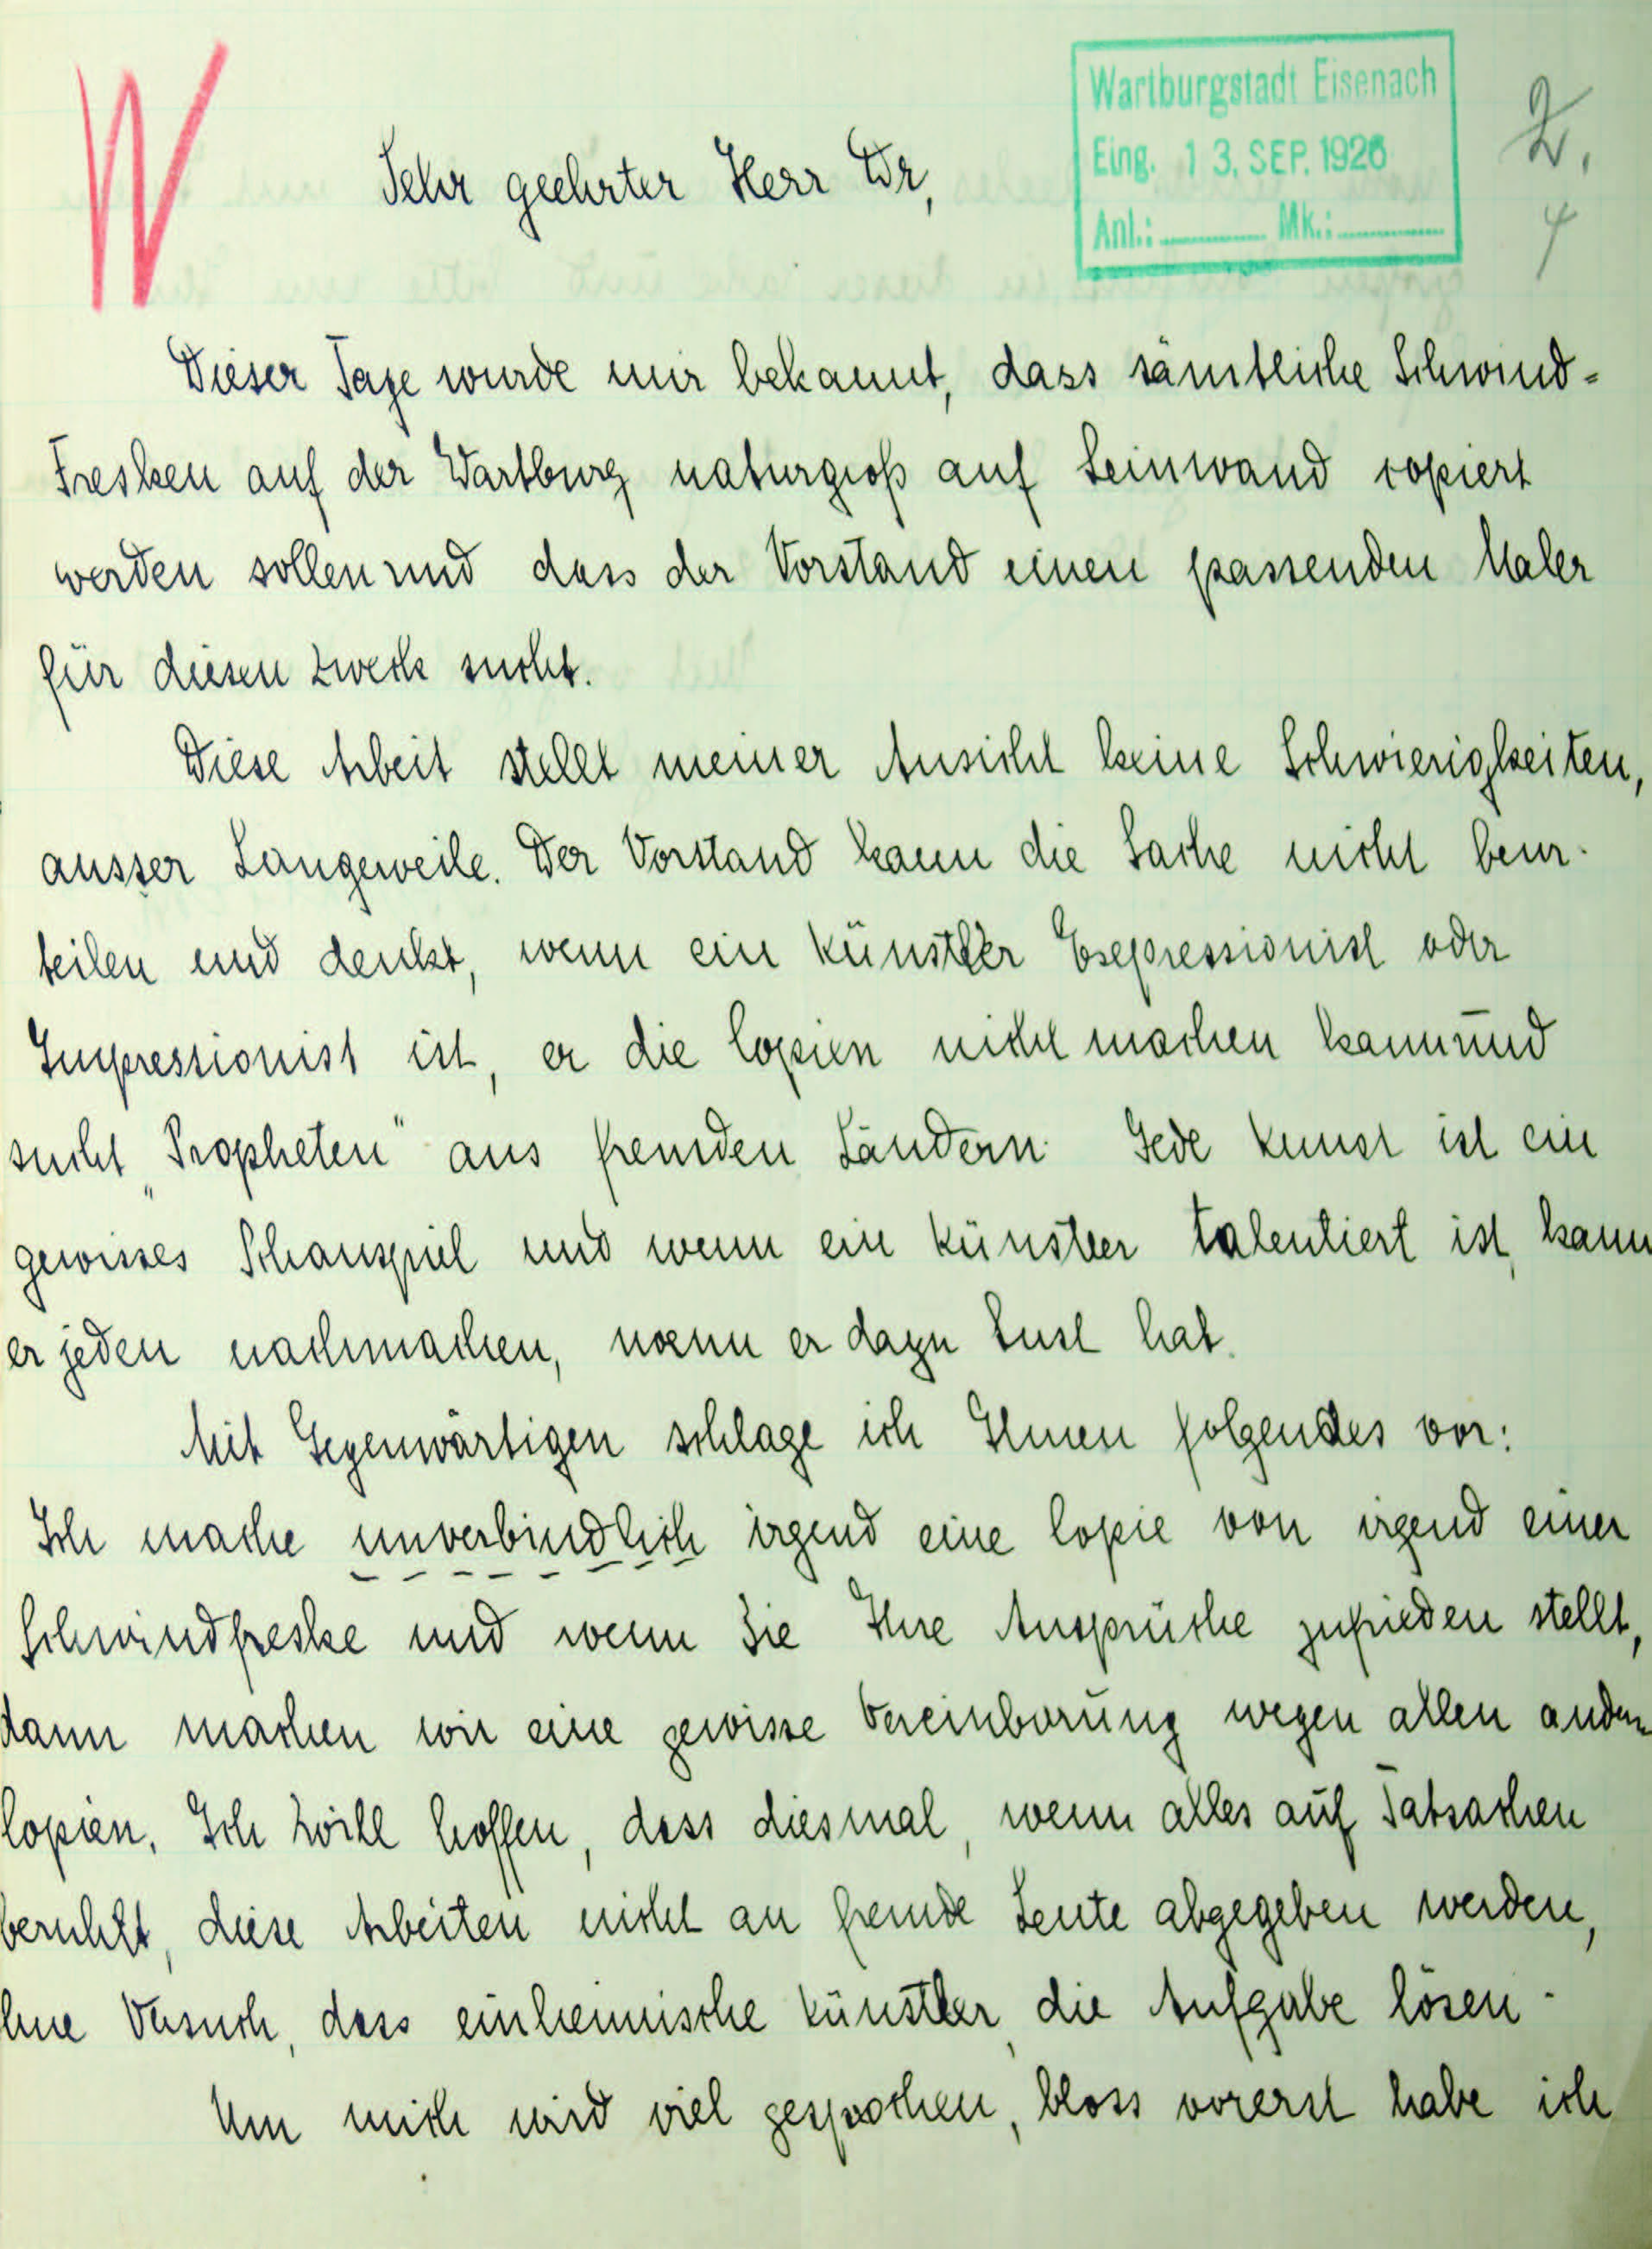 W
Wartburgstadt Eisenach
Eing. 13. SEP. 1926
Anl.: Mk.:
Sehr geehrter Herr Dr,
Dieser Tage wurde mir bekannt, dass sämtliche Schwind-
Fresken auf der Wartburg naturgroß auf Leinwand copiert
werden sollen und dass der Vorstand einen passenden Maler
für diesen Zweck sucht.
Diese Arbeit stellt meiner Ansicht keine Schwierigkeiten,
ausser Langeweile. Der Vorstand kann die Sache nicht beur-
teilen und denkt, wenn ein Künstler Expressionist oder
Impressionist ist, er die Copien nicht machen kann und
sucht „Propheten" aus fremden Ländern. Jede Kunst ist ein
gewisses Schauspiel und wenn ein Künstler talentiert ist, kann
er jeden nachmachen, wenn er dazu Lust hat.
Mit Gegenwärtigen schlage ich Ihnen folgendes vor:
Ich mache unverbindlich irgend eine Copie von irgend einer
Schwindfreske und wenn Sie Ihre Ansprüche zufrieden stellt,
dann machen wir eine gewisse Vereinbarung wegen allen andern
Copien. Ich will hoffen, dass diesmal, wenn alles auf Tatsachen
beruht, diese Arbeiten nicht an fremde Leute abgegeben werden,
hne Versuch, dass einheimische Künstler, die Aufgabe lösen.
Um mich wird viel gesprochen, bloss vorerst habe ich